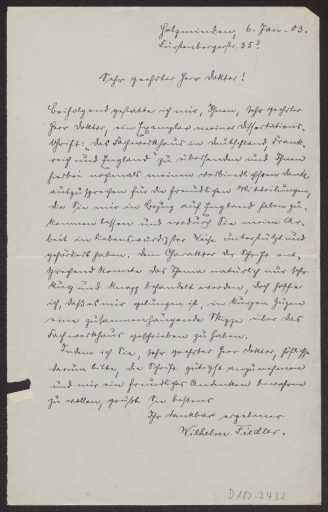 Holzminden, 6. Jan. 03.
Fürstenbergerstr. 35 I
Sehr geehrter Herr Doktor!
Beifolgend gestatte ich mir, Ihnen, sehr geehrter
Herr Doktor, ein Exemplar meiner Dissertations-
schrift: "Das Fachwerkhaus in Deutschland, Frank-
reich und England" zu übersenden und Ihnen
hierbei nochmals meinen verbindlichsten Dank
auszusprechen für die freundlichen Mitteilungen,
die Sie mir in Bezug auf England haben zu-
kommen lassen und wodurch Sie meine Ar-
beit in liebenswürdigster Weise unterstützt und
gefördert haben. Dem Charakter der Schrift ent-
sprechend konnte das Thema natürlich nur sehr
kurz und knapp behandelt werden, doch hoffe
ich, daß es mir gelungen ist, in kurzen Zügen
eine zusammenhängende Skizze über das
Fachwerkhaus geschrieben zu haben.
Indem ich Sie, sehr geehrter Herr Doktor, höflichst
darum bitte, die Schrift gütigst anzunehmen
und mir ein freundliches Andenken bewahren
zu wollen, grüßt Sie bestens
Ihr dankbar ergebener
Wilhelm Fiedler.
D 182-2432